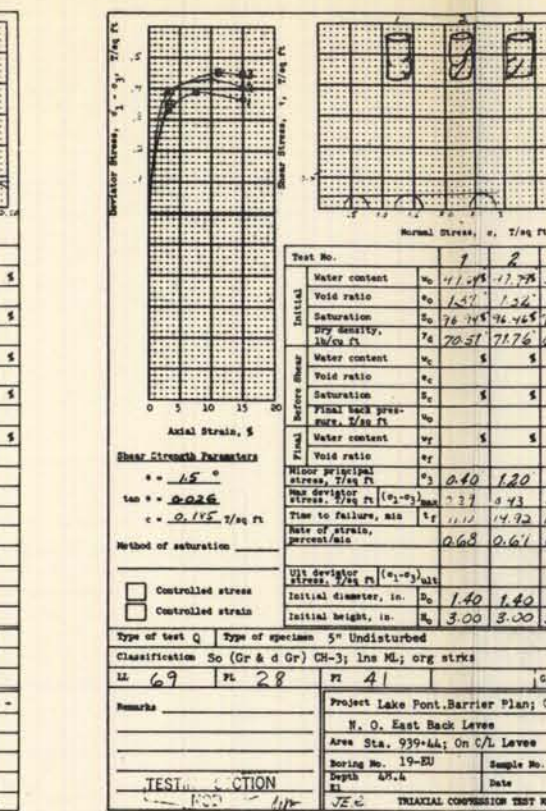 Deviator Stress, σ1 - σ3, T/sq ft
Shear Stress, τ, T/sq ft
1 2 3
0 5 10 15 20
Axial Strain, %
Normal Stress, σ, T/sq ft
Shear Strength Parameters
1.5 °
tan = 0.026
c = 0.185 T/sq ft
Method of saturation
Controlled stress
Controlled strain
Test No. 1 2
Initial
Water content w0 % %
Void ratio e0
Saturation S0 96.46%
Dry density, lb/cu ft γd 70.51 71.76
Before Shear
Water content wc % %
Void ratio ec
Saturation Sc % %
Final back pressure, T/sq ft u0
Final
Water content wf % %
Void ratio ef
Minor principal stress, T/sq ft σ3 0.40 1.20
Max deviator stress, T/sq ft (σ1-σ3)max 0.43
Time to failure, min tf 14.92
Rate of strain, percent/min 0.68 0.61
Ult deviator stress, T/sq ft (σ1-σ3)ult
Initial diameter, in. D0 1.40 1.40
Initial height, in. H0 3.00 3.00
Type of test Q Type of specimen 5" Undisturbed
Classification So (Gr & d Gr) CH-3; lns ML; org strks
LL 69 PL 28 PI 41
Remarks
Project Lake Pont.Barrier Plan;
N. O. East Back Levee
Area Sta. 939+44; On C/L Levee
Boring No. 19-EU Sample No.
Depth El Date
TRIAXIAL COMPRESSION TEST